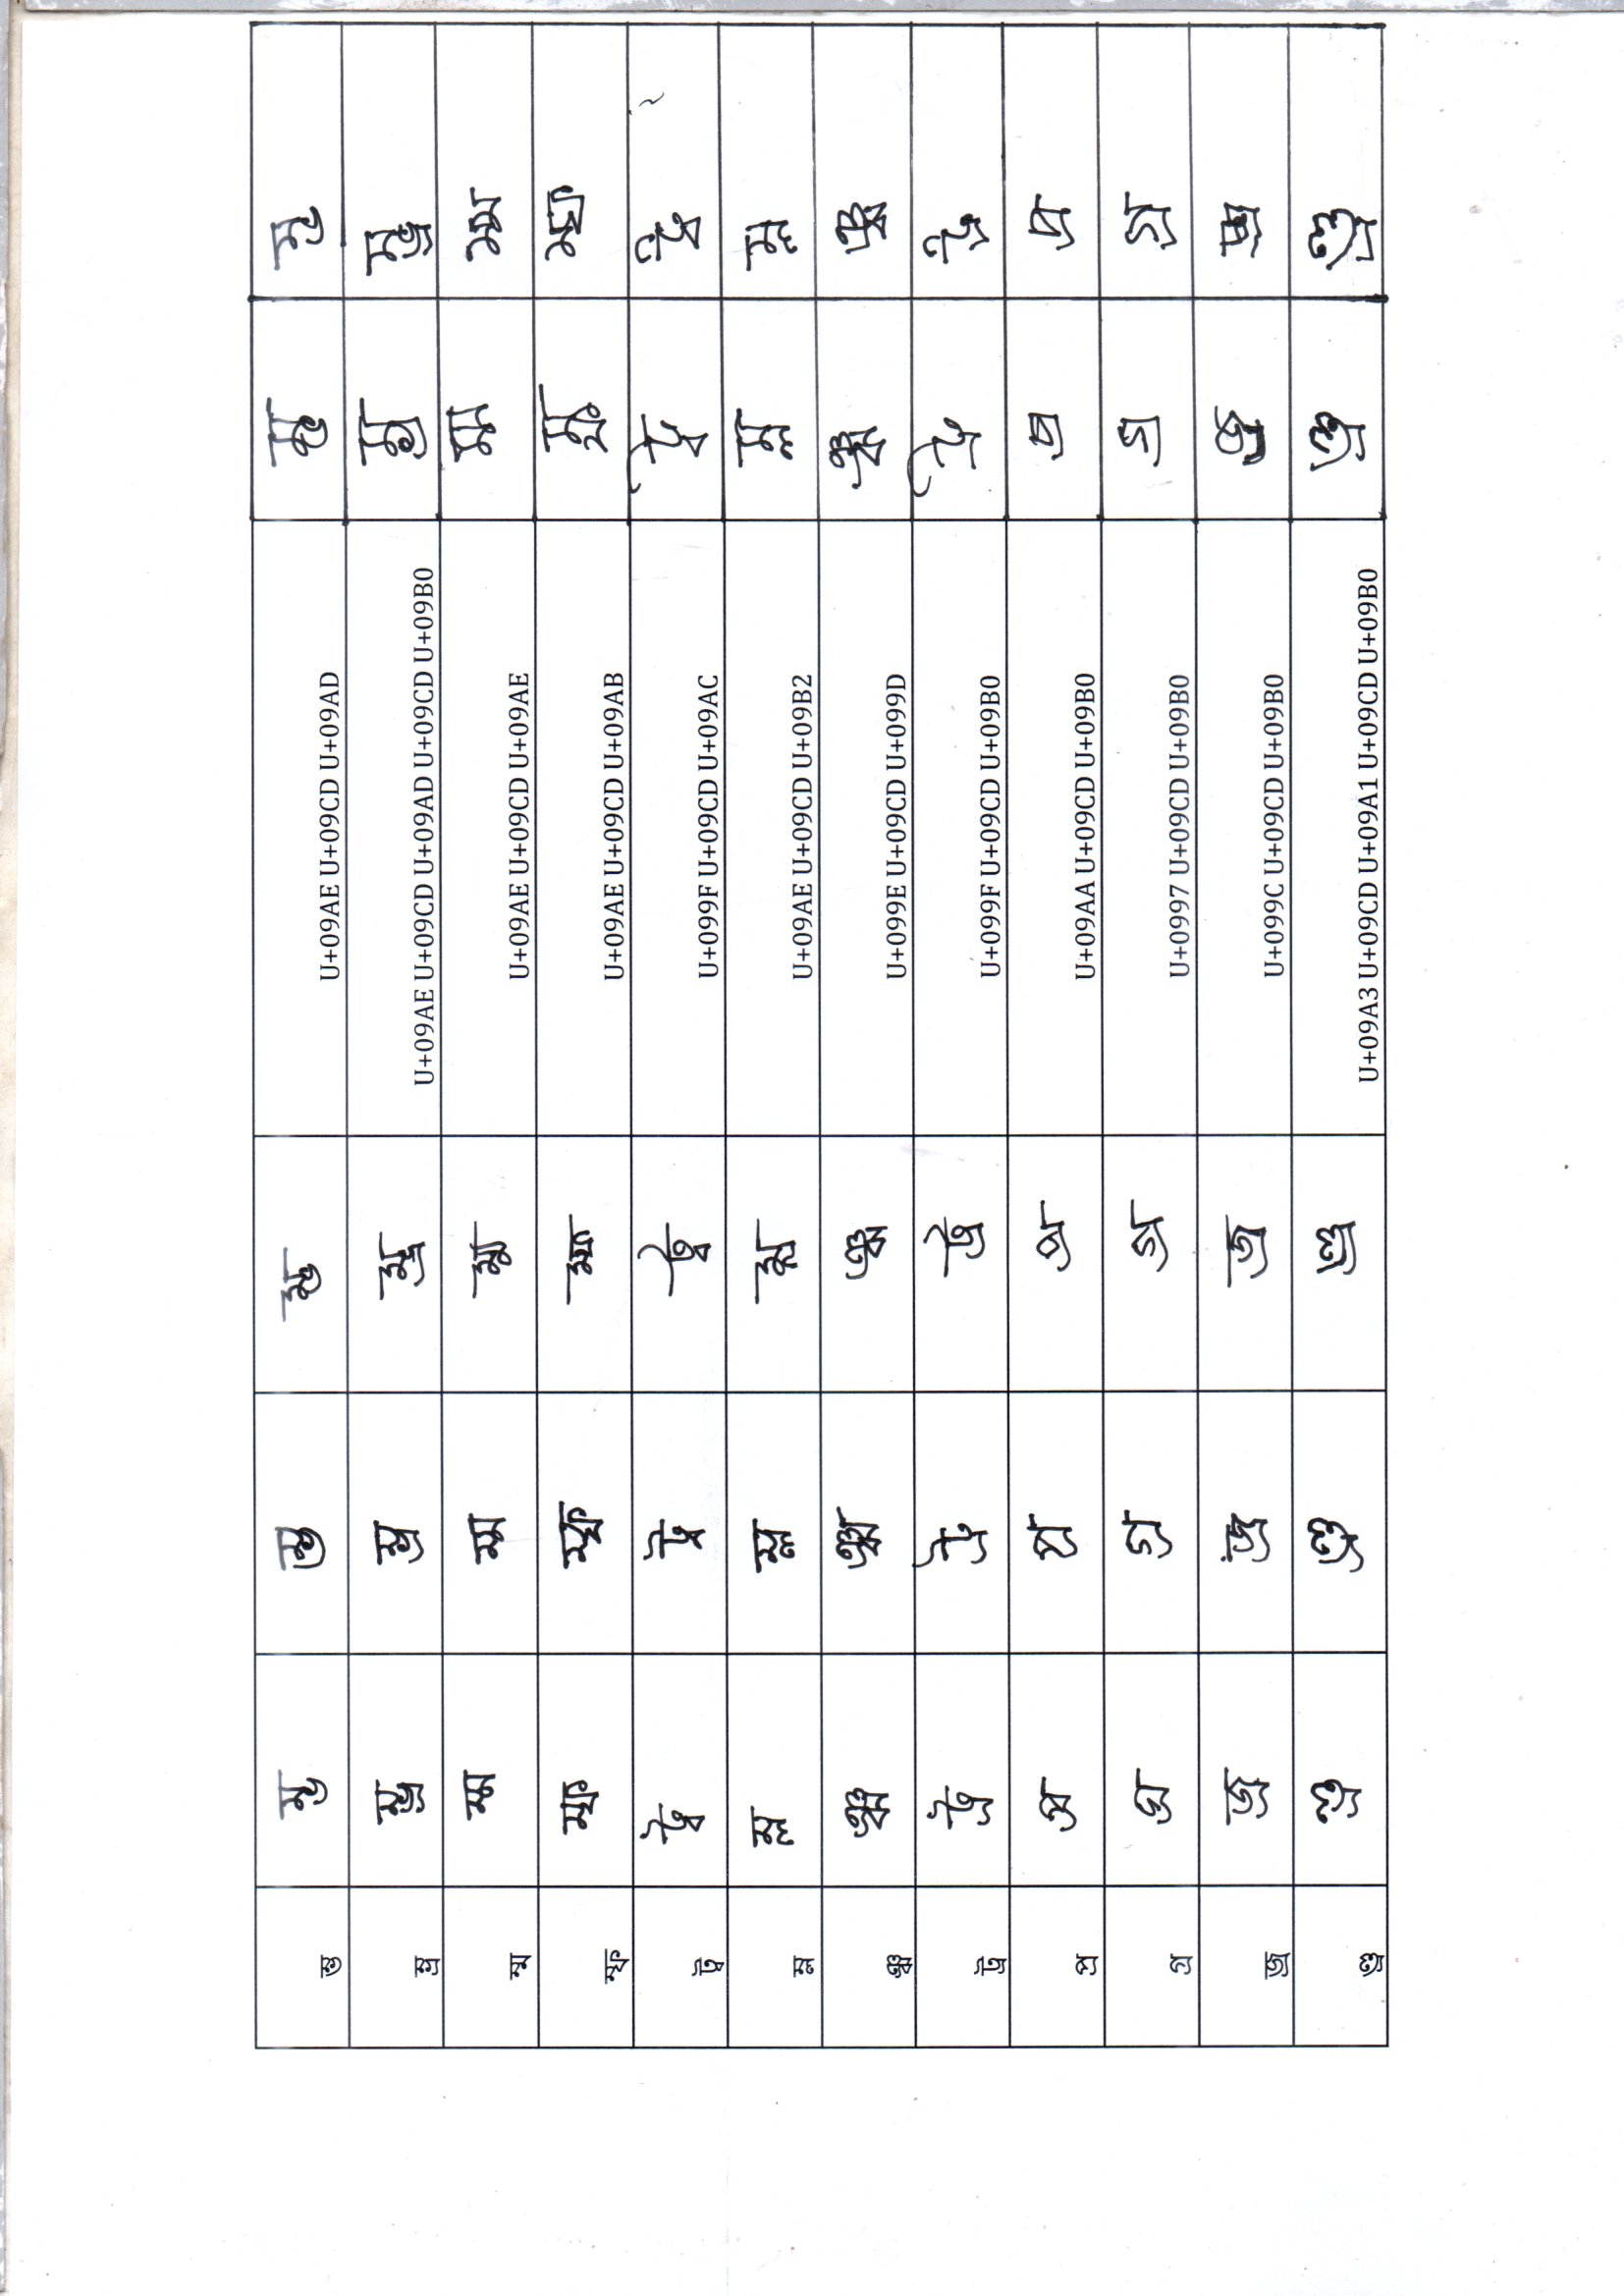 ম্ভ ম্ভ ম্ভ ম্ভ U+09AE U+09CD U+09AD ম্ভ ম্ভ
ম্ভ্র ম্ভ্র ম্ভ্র ম্ভ্র U+09AE U+09CD U+09AD U+09CD U+09B0 ম্ভ্র ম্ভ্র
ম্ম ম্ম ম্ম ম্ম U+09AE U+09CD U+09AE ম্ম ম্ম
ম্ফ ম্ফ ম্ফ ম্ফ U+09AE U+09CD U+09AB ম্ফ ম্ফ
ট্ব ট্ব ট্ব ট্ব U+099F U+09CD U+09AC ট্ব ট্ব
ম্ল ম্ল ম্ল ম্ল U+09AE U+09CD U+09B2 ম্ল ম্ল
ঞ্ঝ ঞ্ঝ ঞ্ঝ ঞ্ঝ U+099E U+09CD U+099D ঞ্ঝ ঞ্ঝ
ট্র ট্র ট্র ট্র U+099F U+09CD U+09B0 ট্র ট্র
প্র প্র প্র প্র U+09AA U+09CD U+09B0 প্র প্র
গ্র গ্র গ্র গ্র U+0997 U+09CD U+09B0 গ্র গ্র
জ্র জ্র জ্র জ্র U+099C U+09CD U+09B0 জ্র জ্র
ণ্ড্র ণ্ড্র ণ্ড্র ণ্ড্র U+09A3 U+09CD U+09A1 U+09CD U+09B0 ণ্ড্র ণ্ড্র